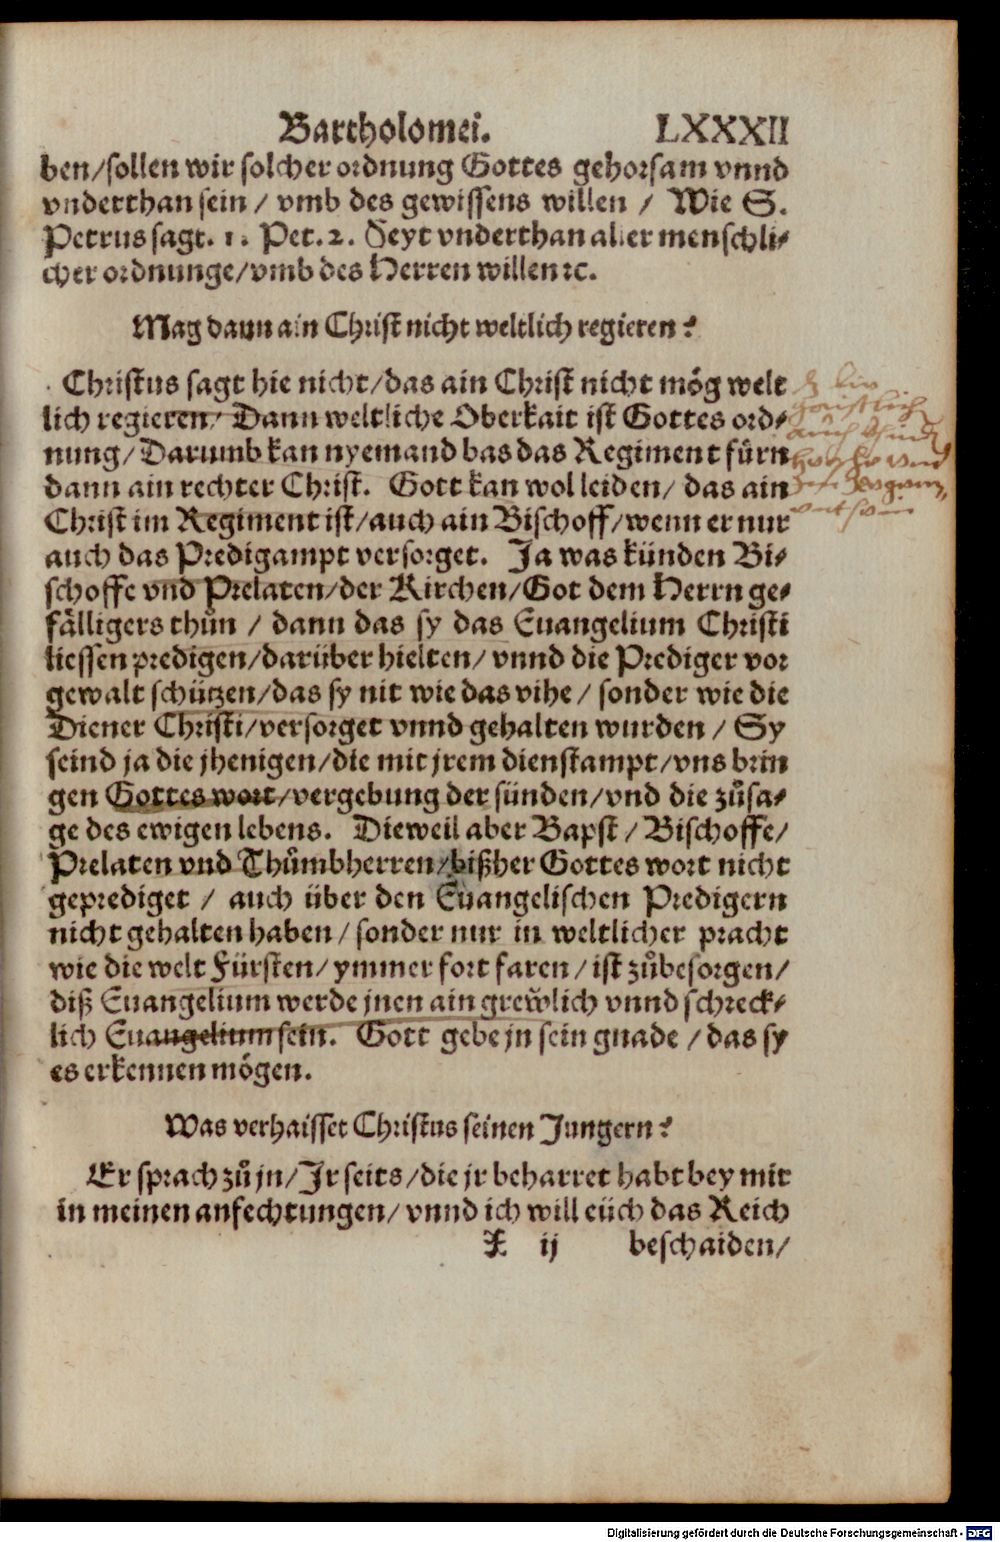 Bartholomei. LXXXII
ben/sollen wir solcher ordnung Gottes gehorsam vnnd
vnderthan sein / vmb des gewissens willen / Wie S.
Petrus sagt. 1. Pet. 2. Seyt vnderthan aller menschli⸗
cher ordnunge/vmb des Herren willen ꝛc.
Mag dann ain Christ nicht weltlich regieren?
Christus sagt hie nicht/das ain Christ nicht mög welt
lich regieren/ Dann weltliche Oberkait ist Gottes ord⸗
nung/Darumb kan nyemand bas das Regiment fürn
dann ain rechter Christ. Gott kan wol leiden/ das ain
Christ im Regiment ist/auch ain Bischoff/wenn er nur
auch das Predigampt versorget. Ja was künden Bi⸗
schoffe vnd Prelaten/der Kirchen/Got dem Herrn ge⸗
fälligers thůn / dann das sy das Euangelium Christi
liessen predigen/darüber hielten/ vnnd die Prediger vor
gewalt schützen/das sy nit wie das vihe / sonder wie die
Diener Christi/versorget vnnd gehalten wurden / Sy
seind ja die jhenigen/die mit jrem dienstampt/vns brin
gen Gottes wort/vergebung der sünden/vnd die zůsa⸗
ge des ewigen lebens. Dieweil aber Bapst / Bischoffe/
Prelaten vnd Thůmbherren/bißher Gottes wort nicht
geprediget / auch über den Euangelischen Predigern
nicht gehalten haben / sonder nur in weltlicher pracht
wie die welt Fürsten/ymmer fort faren / ist zůbesorgen/
diß Euangelium werde jnen ain grewlich vnnd schreck⸗
lich Euangelium sein. Gott gebe jn sein gnade / das sy
es erkennen mögen.
Was verhaisset Christus seinen Jungern?
Er sprach zů jn/Ir seits/die jr beharret habt bey mir
in meinen anfechtungen/ vnnd ich will eüch das Reich
X ij beschaiden/
Digitalisierung gefördert durch die Deutsche Forschungsgemeinschaft - DFG